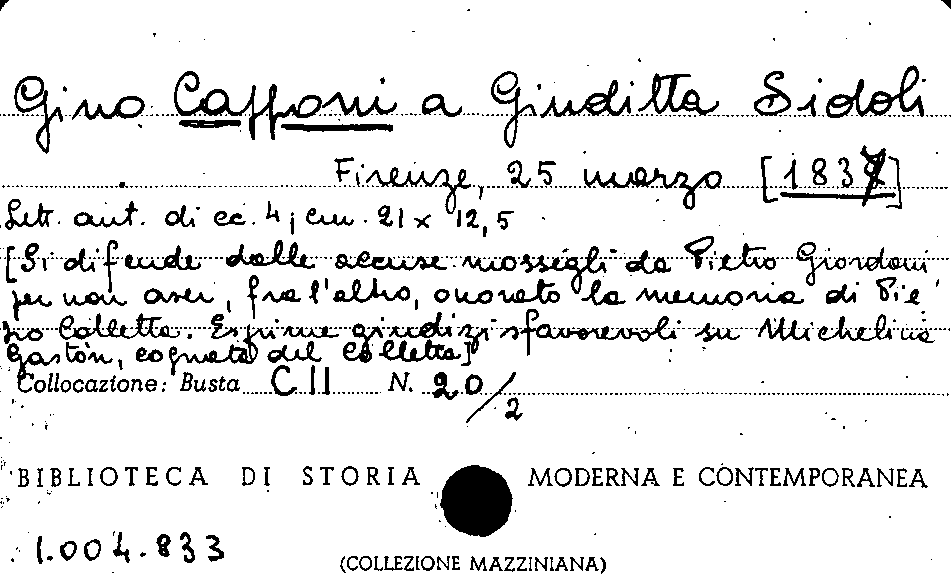 Gino Capponi a Giuditta Sidoli
Firenze, 25 marzo [1837]
Lett. aut. di cc. 4; cm. 21 x 12,5
[Si difende dalle accuse mossegli da Pietro Giordani
per non aver, fra l'altro, onorato la memoria di Pie
tro Colletta. Esprime giudizi sfavorevoli su Michelina
Gaston, cognata del Colletta]
Collocazione: Busta C II N. 20/2
BIBLIOTECA DI STORIA MODERNA E CONTEMPORANEA
1.004.833
(COLLEZIONE MAZZINIANA)